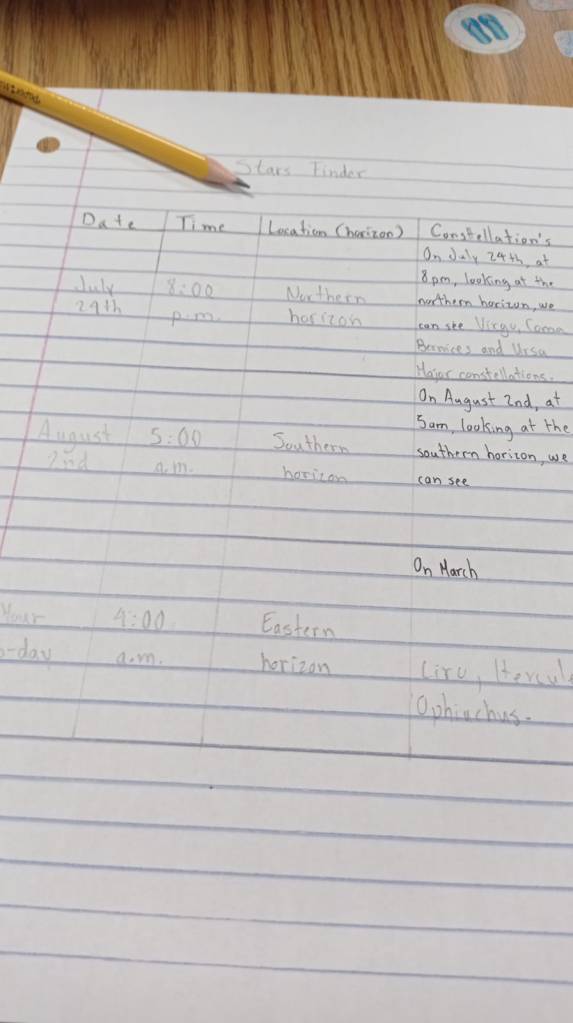 Stars Finder
Date Time Location (horizon) Constellation's
On July 24th, at
8 pm, looking at the
July 8:00 Northern northern horizon, we
29th p.m. horizon can see Virgo, Coma
Bernices and Ursa
Major constellations.
On August 2nd, at
5am, looking at the
August 5:00 Southern southern horizon, we
2nd a.m. horizon can see
On March
Your 4:00 Eastern
-day a.m. horizon Circu, Hercul
Ophiuchus.